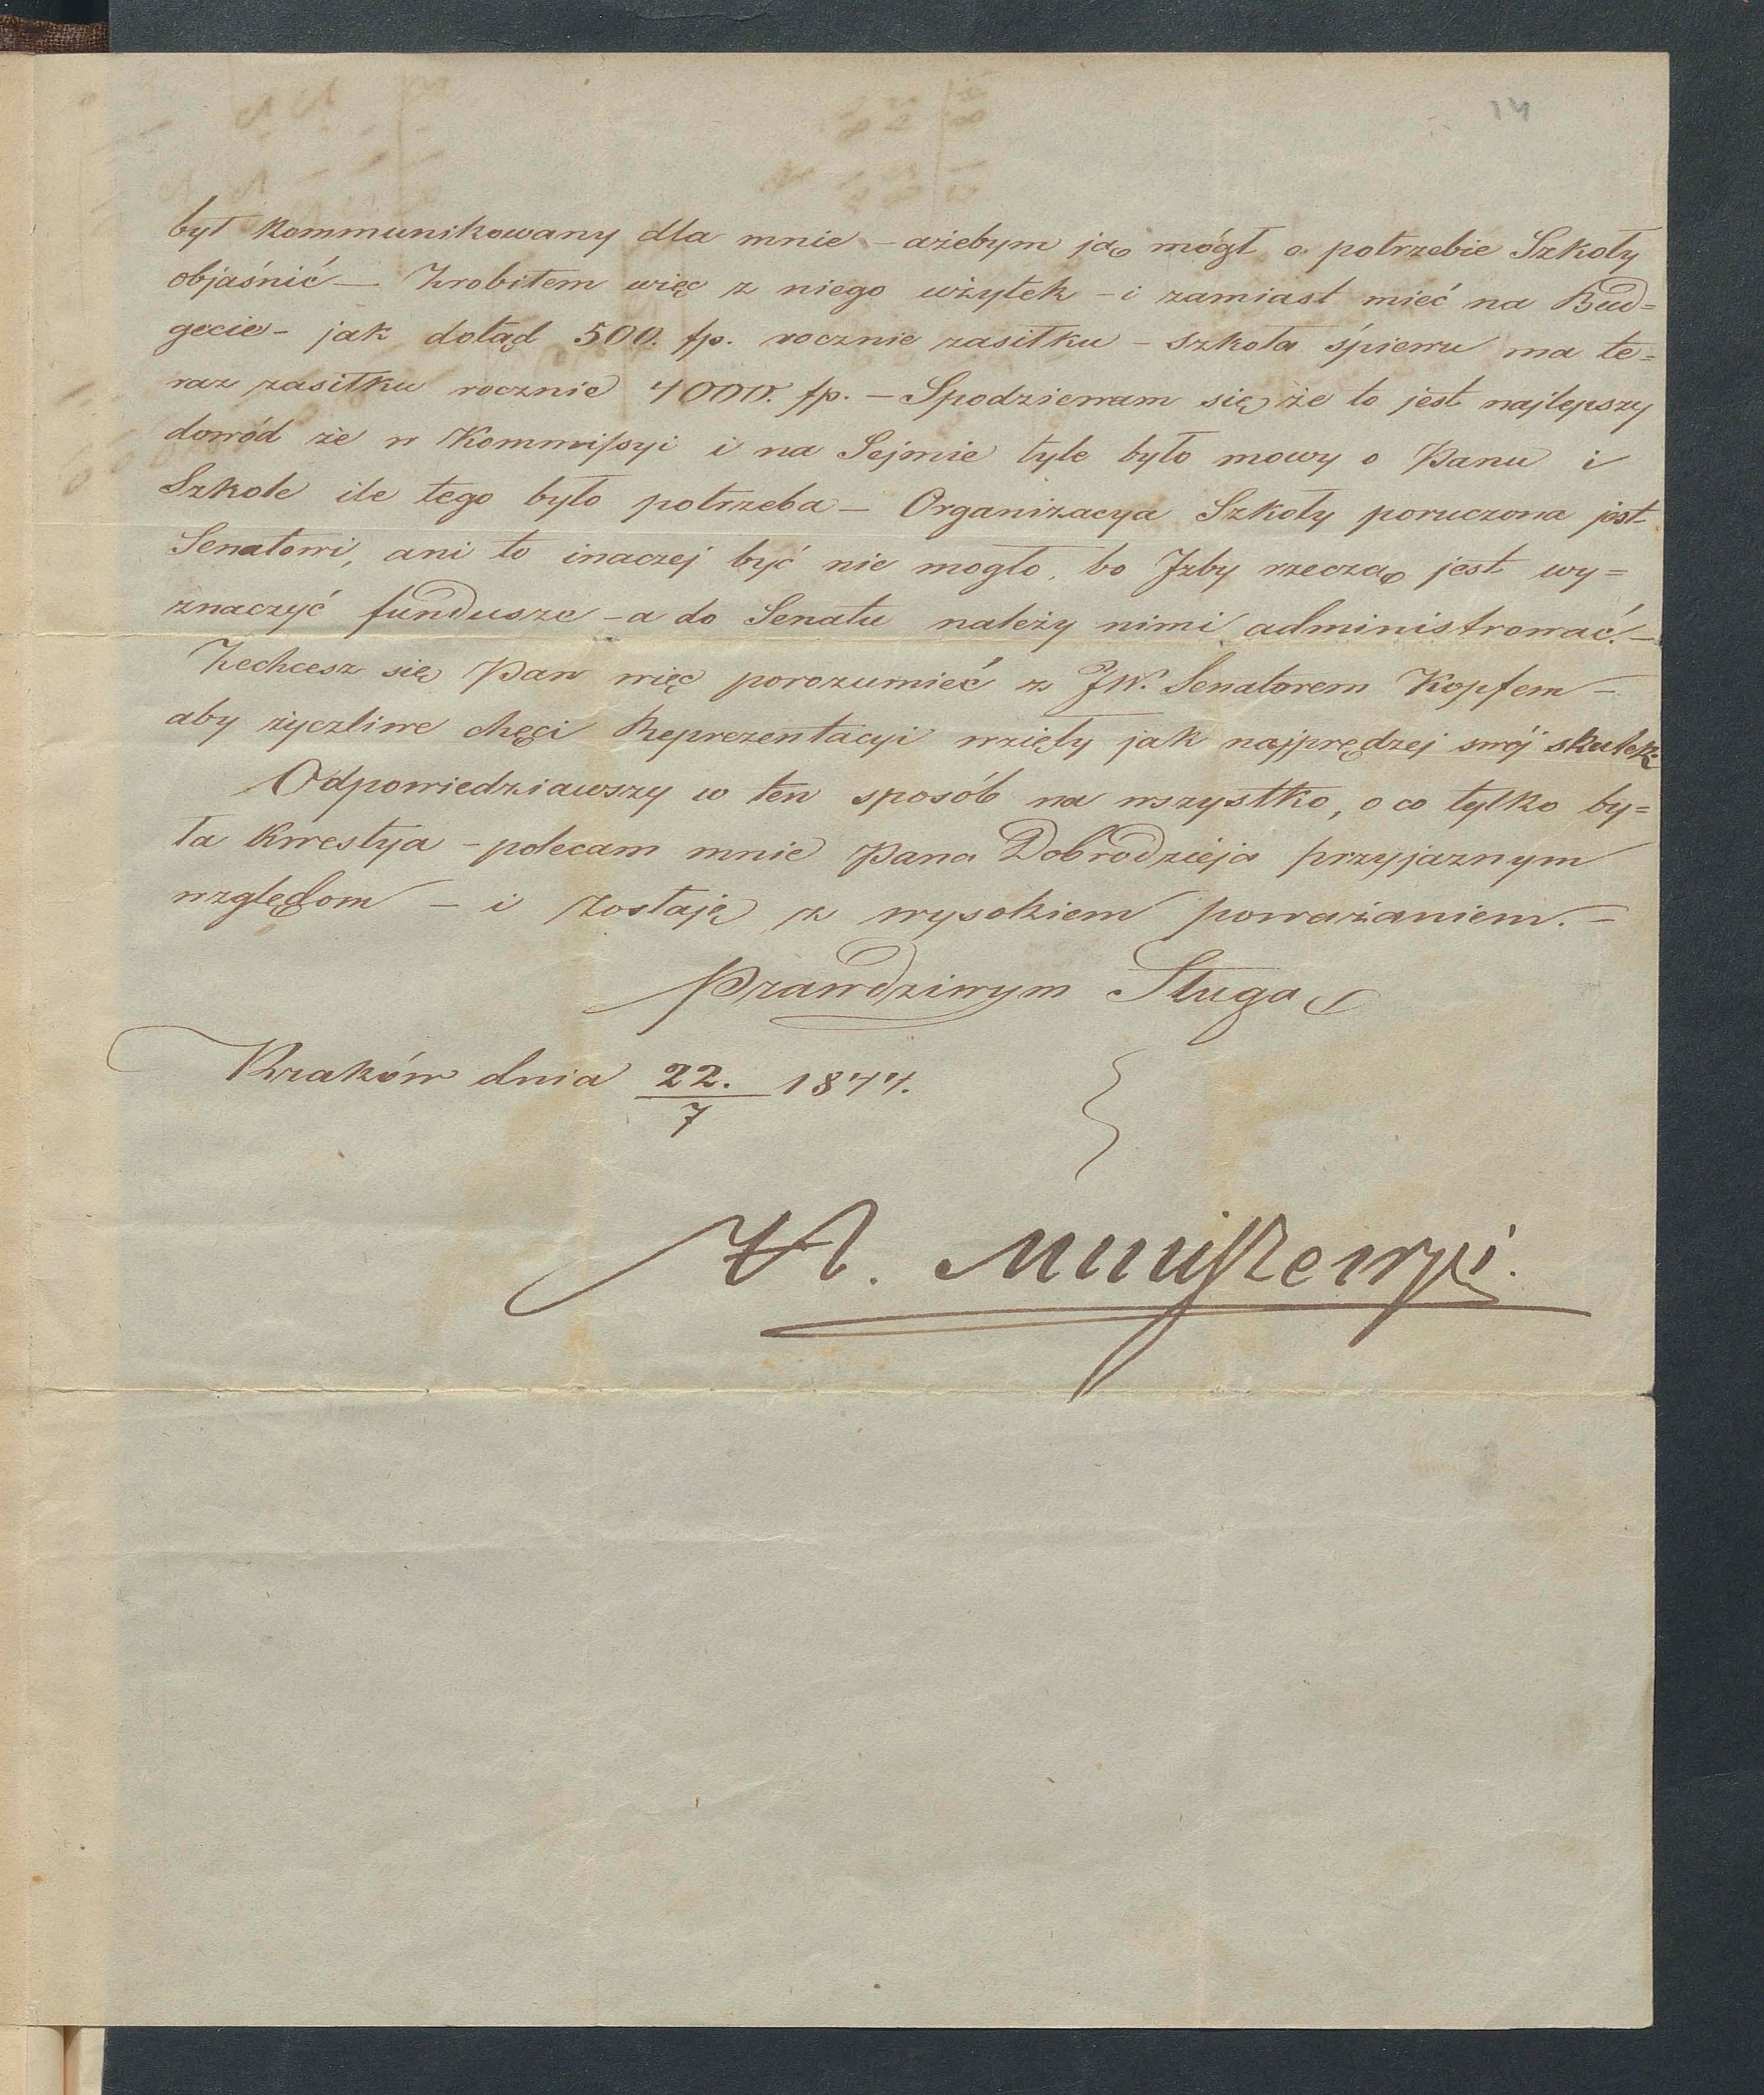 14
był kommunikowany dla mnie – ażebym ją mógł o potrzebie Szkoły
objaśnić – Zrobiłem więc z niego użytek – i zamiast mieć na Bud=
gecie – jak dotąd 500. fp. rocznie zasiłku – szkoła śpiewu ma te=
raz zasiłku rocznie 4000. fp. – Spodziewam się że to jest najlepszy
dowód że w Kommissyi i na Sejmie tyle było mowy o Panu i
Szkole ile tego było potrzeba – Organizacya Szkoły poruczona jest
Senatowi, ani to inaczej być nie mogło, bo Izby rzeczą jest wy=
znaczyć fundusze – a do Senatu należy nimi administrować. –
Zechcesz się Pan więc porozumieć z JW. Senatorem Kopfem –
aby życzliwe chęci Reprezentacyi wzięły jak najprędzej swój skutek
Odpowiedziawszy w ten sposób na wszystko, o co tylko by=
ła kwestya – polecam mnie Pana Dobrodzieja przyjaznym
względom – i zostaję z wysokiem poważaniem. –
Prawdziwym Sługą
Kraków dnia 22./7 1844.